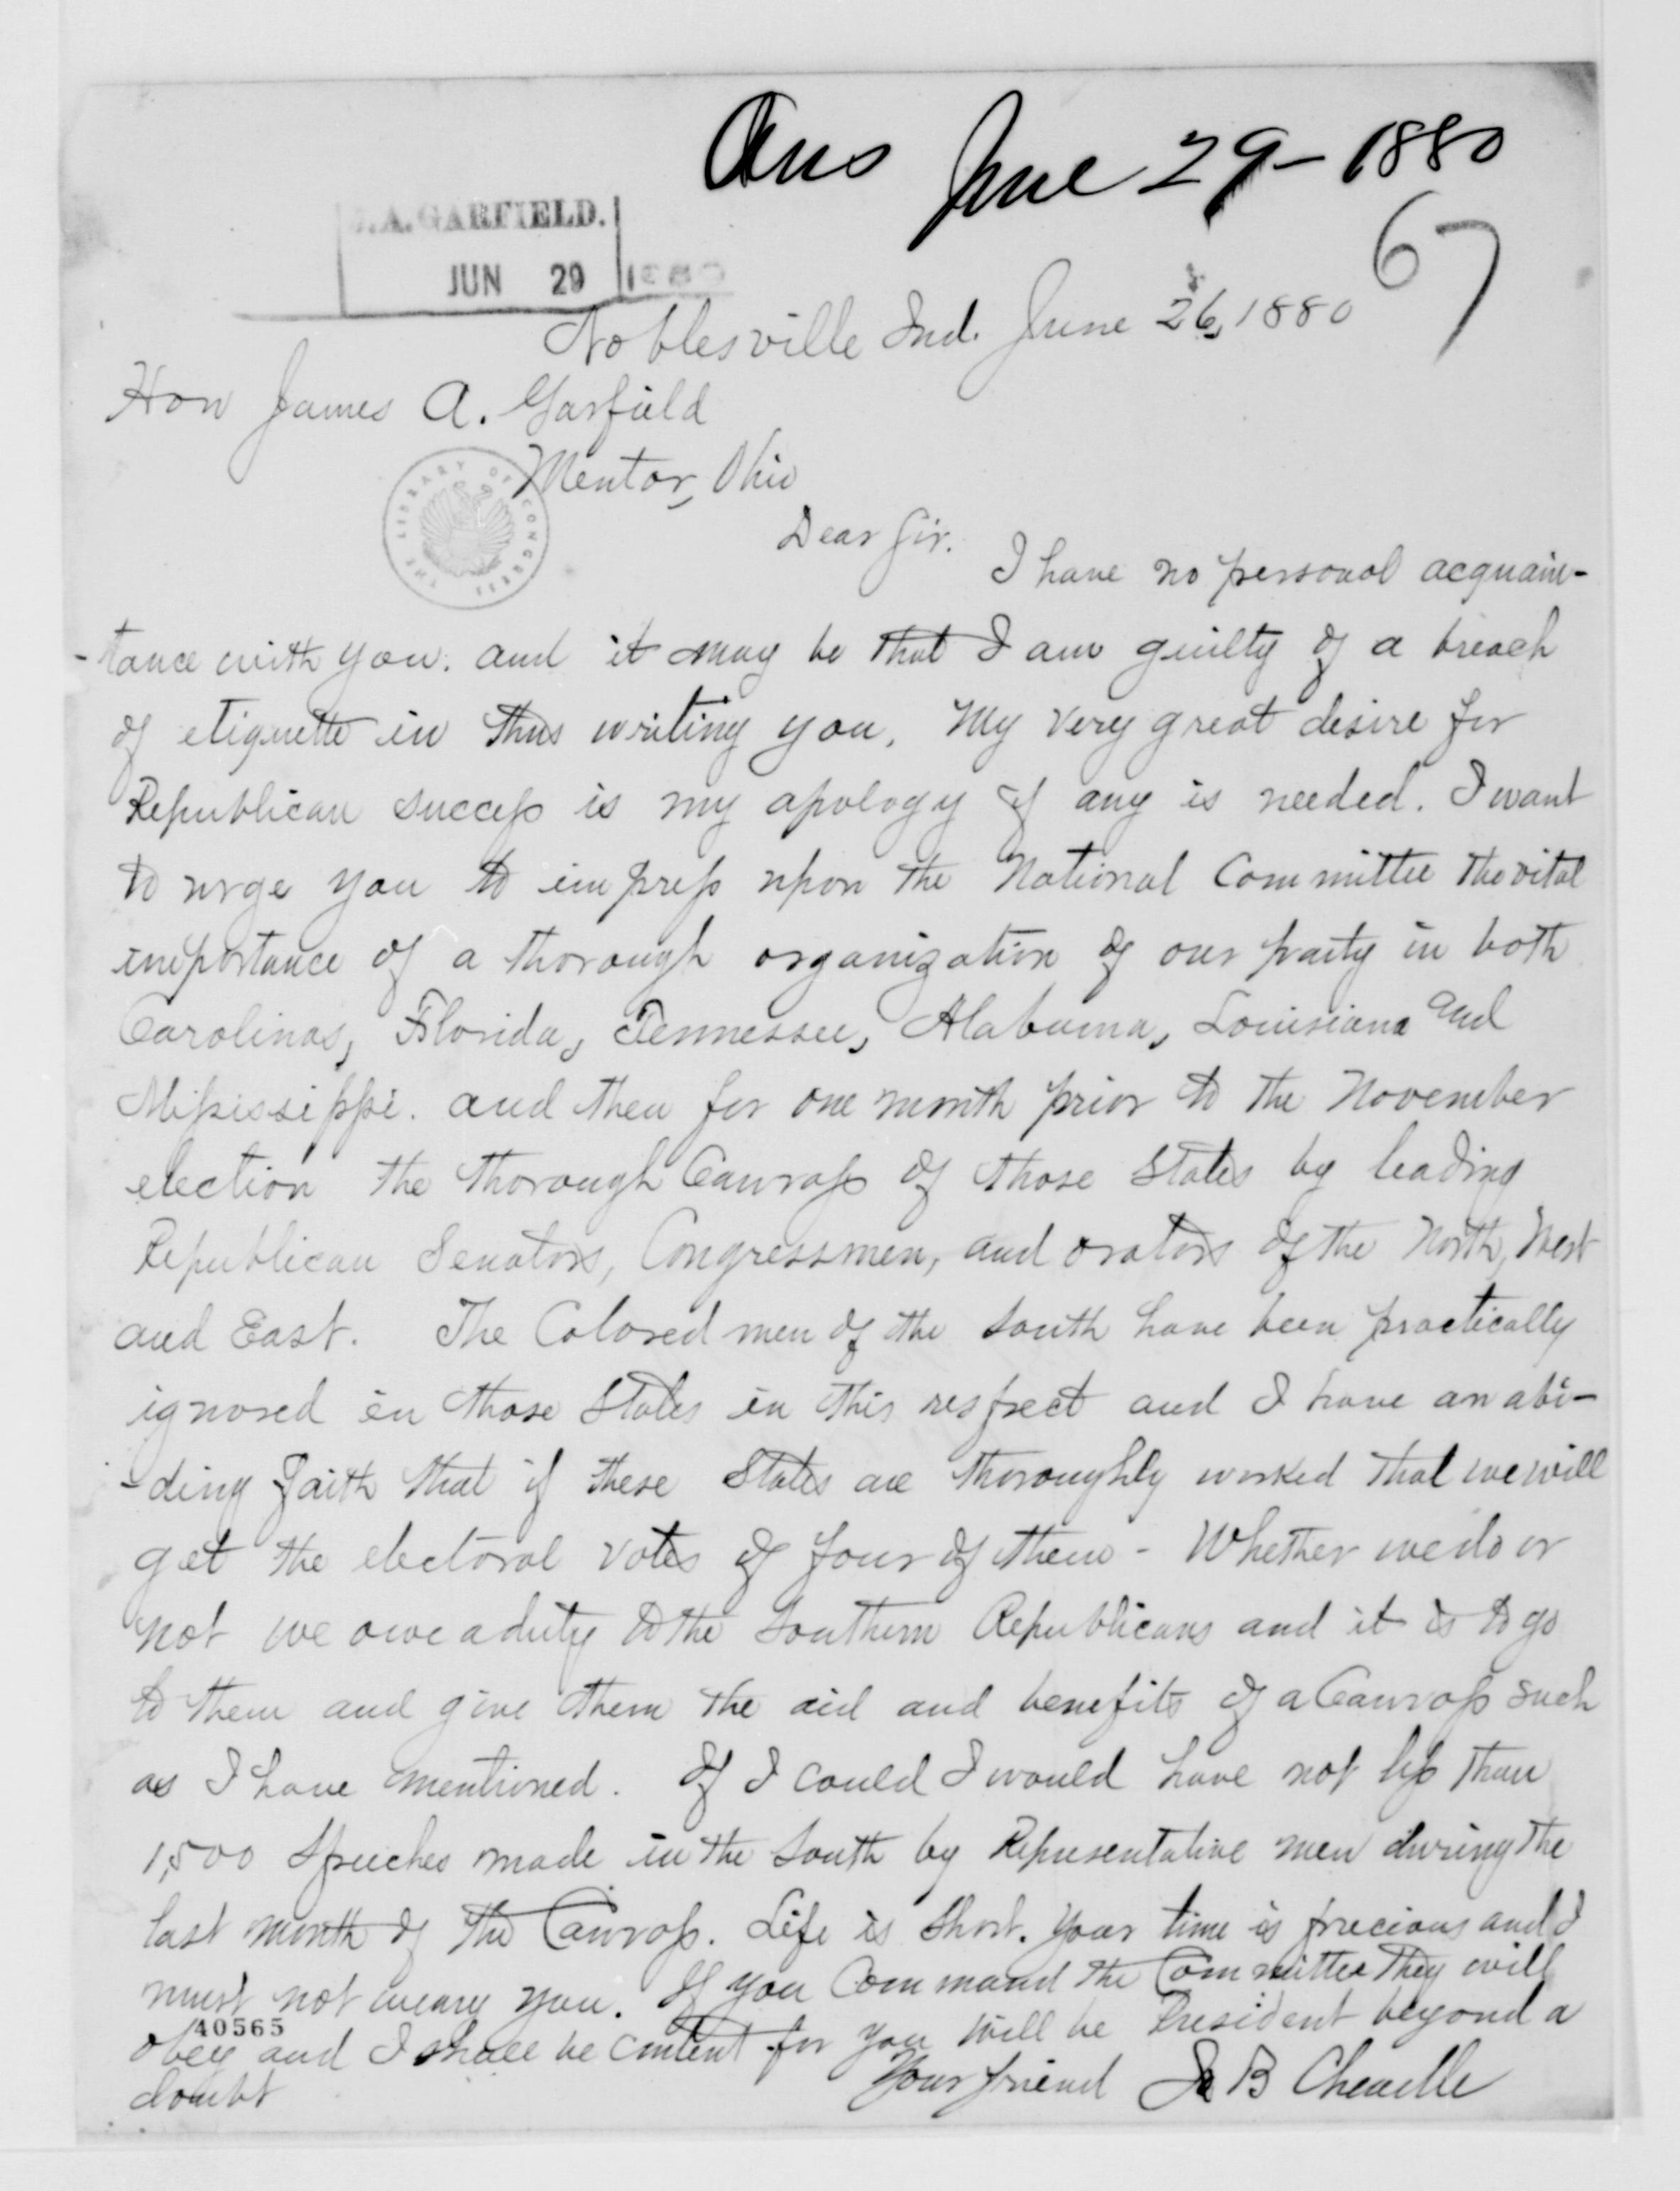 Ans June 29-1880
J.A. GARFIELD.
JUN 29 1880
67
Noblesville Ind. June 26, 1880
Hon James A. Garfield
Mentor, Ohio
THE LIBRARY OF CONGRESS
Dear Sir.
I have no personal acquain-
-tance with you. and it may be that I am guilty of a breach
of etiquette in thus writing you. My very great desire for
Republican success is my apology if any is needed. I want
to urge you to impress upon the National Committee the vital
importance of a thorough organization of our party in both
Carolinas, Florida, Tennessee, Alabama, Louisiana and
Mississippi. and then for one month prior to the November
election the thorough Canvass of those States by leading
Republican Senators, Congressmen, and orators of the North, West
and East. The Colored men of the South have been practically
ignored in those States in this respect and I have an abi-
-ding faith that if these States are thoroughly worked that we will
get the electoral votes of four of them - Whether we do or
not we owe a duty to the Southern Republicans and it is to go
to them and give them the aid and benefits of a Canvass such
as I have mentioned. If I could I would have not less than
1,500 Speeches made in the South by Representative men during the
last month of the Canvass. Life is short. Your time is precious and I
must not weary you. If you Command the Committee they will
40565
obey and I shall be content for you will be President beyond a
doubt
Your friend
B